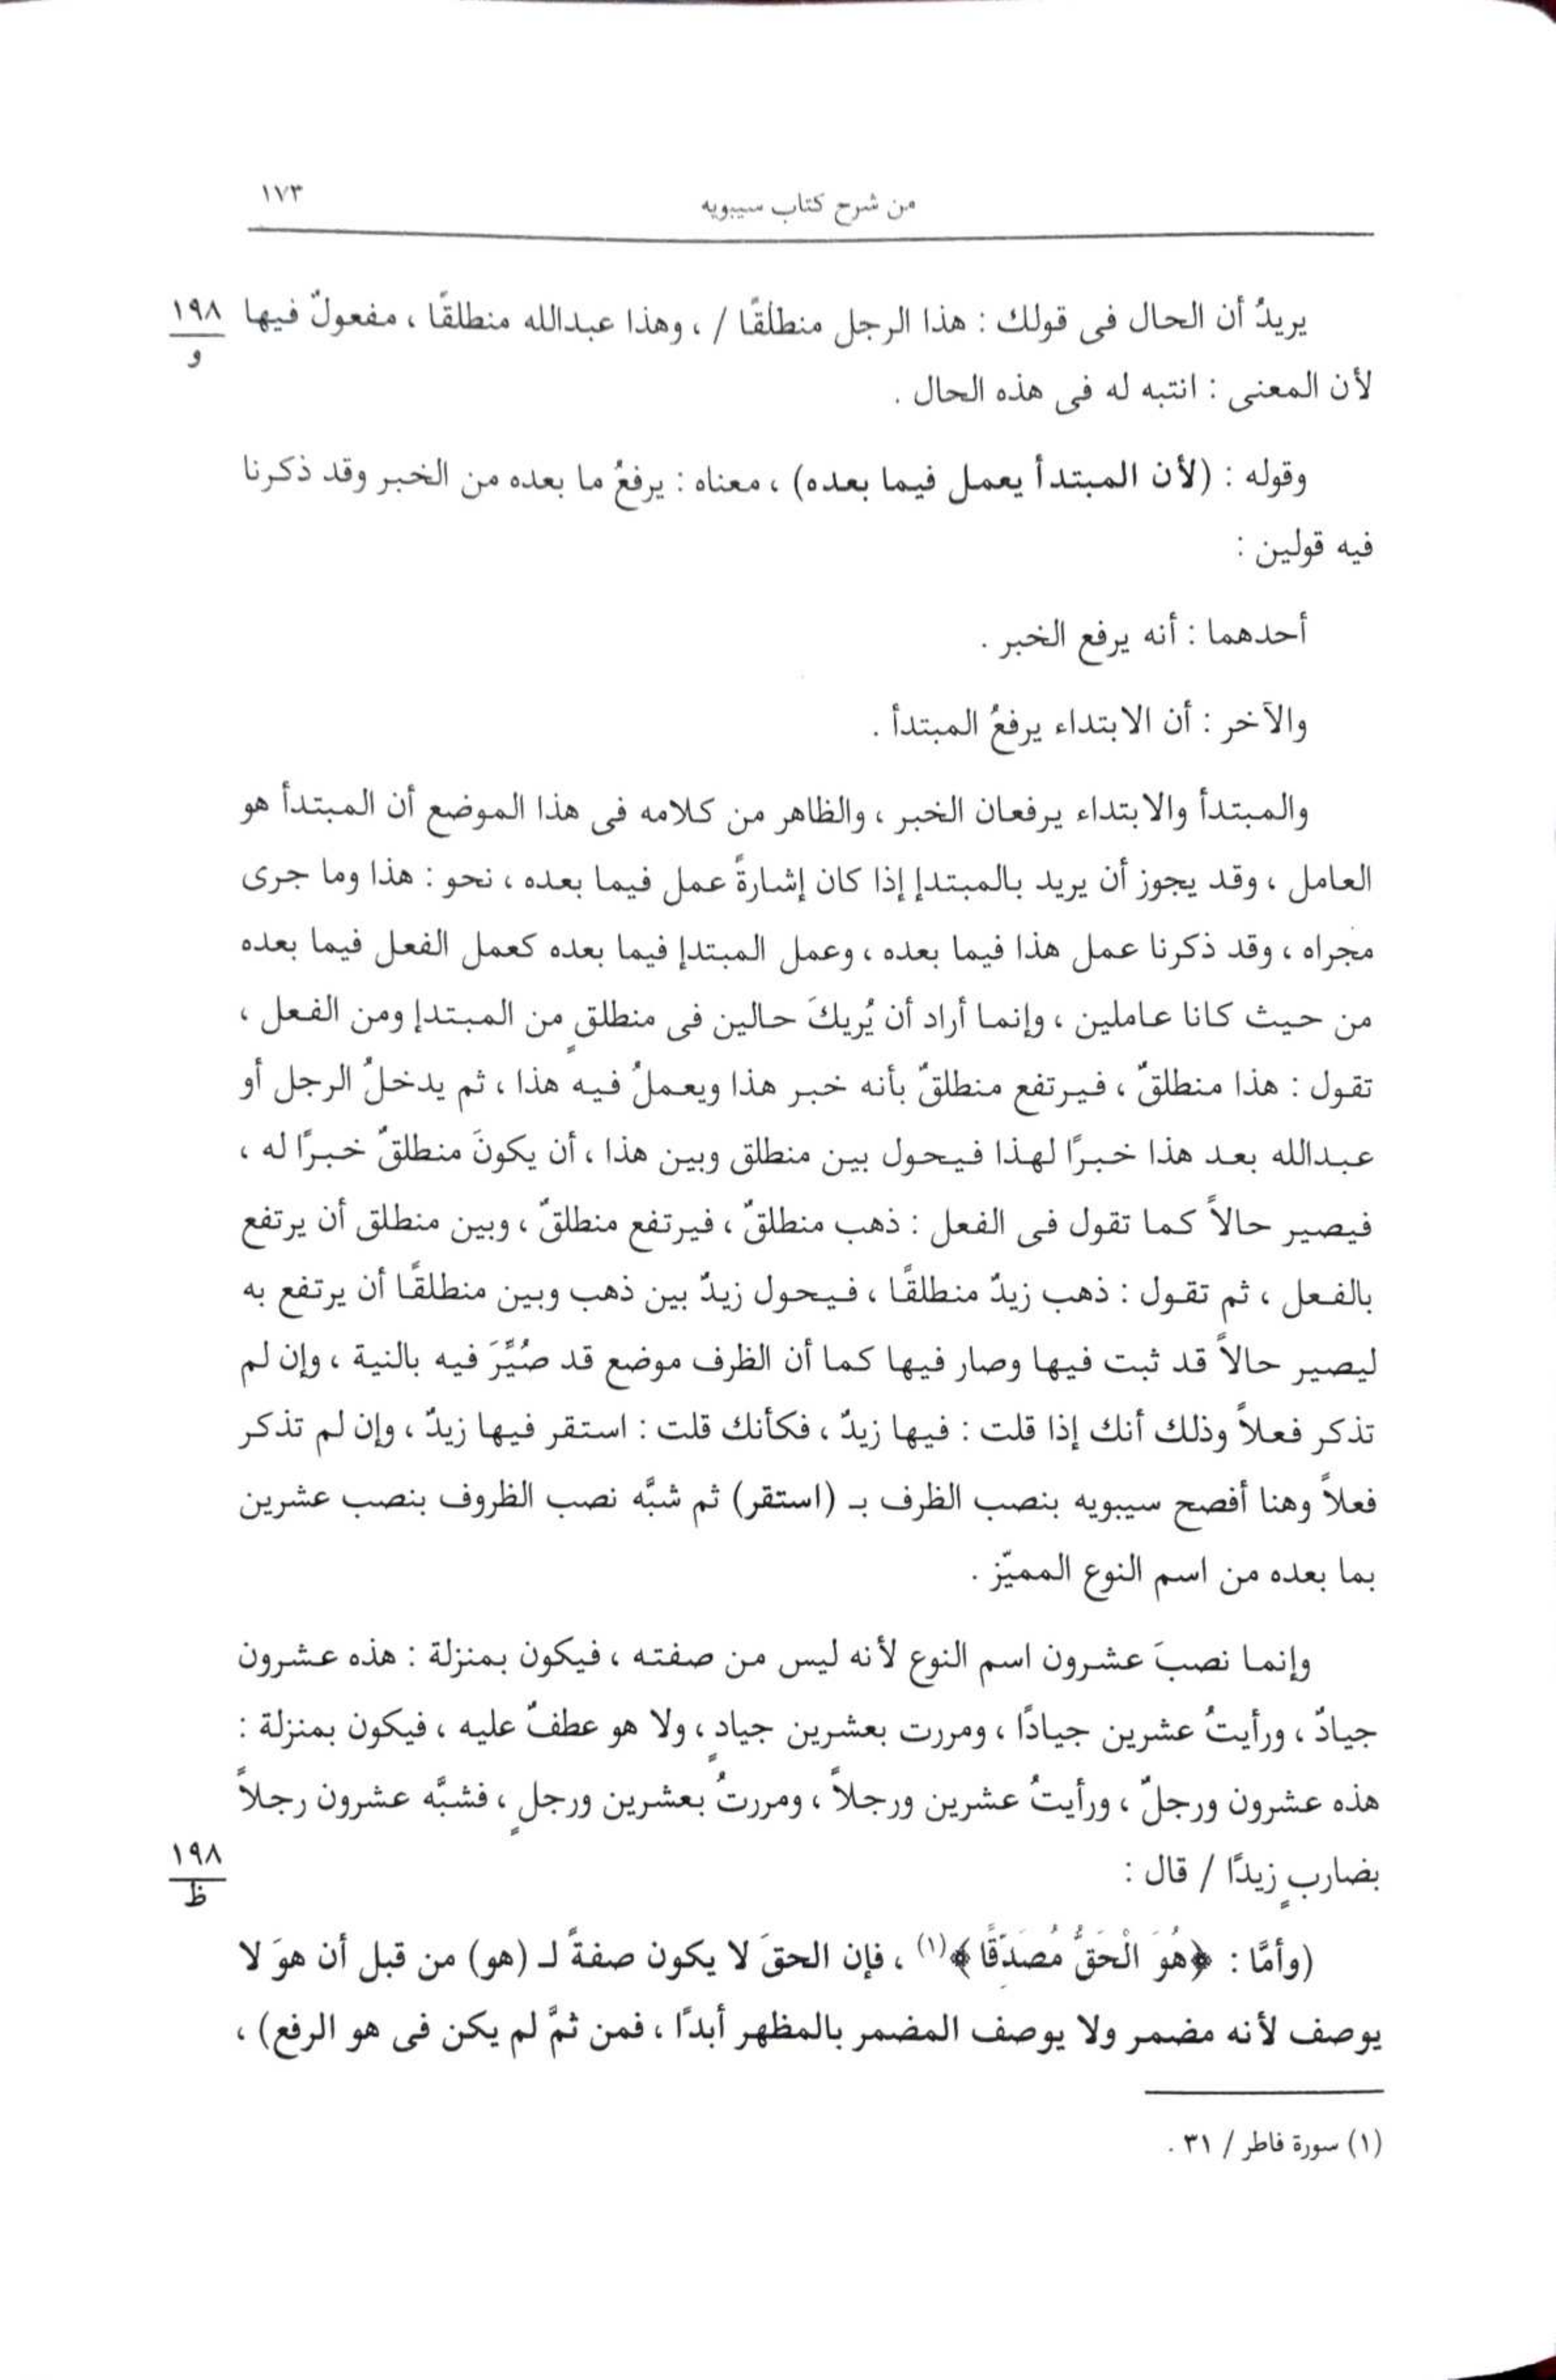 من شرح كتاب سيبويه
١٧٣
يريدُ أن الحال فى قولك : هذا الرجل منطلقًا / ، وهذا عبدالله منطلقًا ، مفعولٌ فيها
١٩٨
و
لأن المعنى : انتبه له فى هذه الحال .
وقوله : (لأن المبتدأ يعمل فيما بعده) ، معناه : يرفعُ ما بعده من الخبر وقد ذكرنا
فيه قولين :
أحدهما : أنه يرفع الخبر .
والآخر : أن الابتداء يرفعُ المبتدأ .
والمبتدأ والابتداء يرفعان الخبر ، والظاهر من كلامه فى هذا الموضع أن المبتدأ هو
العامل ، وقد يجوز أن يريد بالمبتدإ إذا كان إشارةً عمل فيما بعده ، نحو : هذا وما جرى
مجراه ، وقد ذكرنا عمل هذا فيما بعده ، وعمل المبتدإ فيما بعده كعمل الفعل فيما بعده
من حيث كانا عاملين ، وإنما أراد أن يُريكَ حالين فى منطلقٍ من المبتدإ ومن الفعل ،
تقول : هذا منطلقٌ ، فيرتفع منطلقٌ بأنه خبر هذا ويعملُ فيه هذا ، ثم يدخلُ الرجل أو
عبدالله بعد هذا خبرًا لهذا فيحول بين منطلق وبين هذا ، أن يكونَ منطلقٌ خبرًا له ،
فيصير حالاً كما تقول فى الفعل : ذهب منطلقٌ ، فيرتفع منطلقٌ ، وبين منطلق أن يرتفع
بالفعل ، ثم تقول : ذهب زيدٌ منطلقًا ، فيحول زيدٌ بين ذهب وبين منطلقًا أن يرتفع به
ليصير حالاً قد ثبت فيها وصار فيها كما أن الظرف موضع قد صُيِّرَ فيه بالنية ، وإن لم
تذكر فعلاً وذلك أنك إذا قلت : فيها زيدٌ ، فكأنك قلت : استقر فيها زيدٌ ، وإن لم تذكر
فعلاً وهنا أفصح سيبويه بنصب الظرف بـ (استقر) ثم شبَّه نصب الظروف بنصب عشرين
بما بعده من اسم النوع المميّز .
وإنما نصبَ عشرون اسم النوع لأنه ليس من صفته ، فيكون بمنزلة : هذه عشرون
جيادٌ ، ورأيتُ عشرين جيادًا ، ومررت بعشرين جيادٍ ، ولا هو عطفٌ عليه ، فيكون بمنزلة :
هذه عشرون ورجلٌ ، ورأيتُ عشرين ورجلاً ، ومررتُ بعشرين ورجلٍ ، فشبَّه عشرون رجلاً
بضاربٍ زيدًا / قال :
١٩٨
ظ
(وأمَّا : ﴿هُوَ الْحَقُّ مُصَدِّقًا﴾(١) ، فإن الحقَ لا يكون صفةً لـ (هو) من قبل أن هوَ لا
يوصف لأنه مضمر ولا يوصف المضمر بالمظهر أبدًا ، فمن ثمَّ لم يكن فى هو الرفع) ،
(١) سورة فاطر / ٣١ .